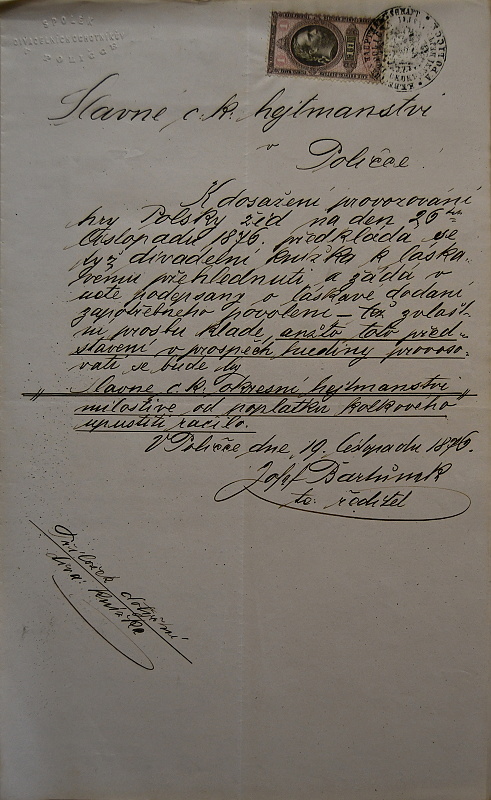 SPOLEK
DIVADELNÍCH OCHOTNÍKŮ
V POLIČCE
Slavné c. k. hejtmanství
v
Poličce!
K dosažení provozování
hry Polsky žid na den 26ho
listopadu 1876. předkládá se
tyž divadelní knížka k láska-
vému přehlednutí a žádá v
uctě podepsaný o láskavé dodání
zapotřebného povolení – též zvlášt-
ní prosbu klade, anžto toto před-
stavení v prospěch hudiny provozo-
vati se bude by
„Slavné c. k. okresní hejtmanství
milostivě od poplatku kolkového“
upustiti račilo.
V Poličce dne 19. listopadu 1876.
Josef Bartůněk
to: ředitel
knížka